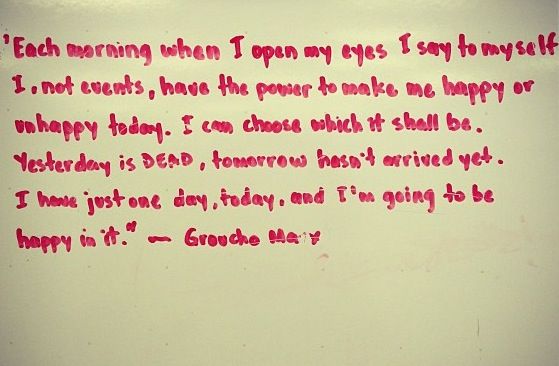 "Each morning when I open my eyes I say to myself
I, not events, have the power to make me happy or
unhappy today. I can choose which it shall be.
Yesterday is DEAD, tomorrow hasn't arrived yet.
I have just one day, today, and I'm going to be
happy in it." ~ Groucho Marx